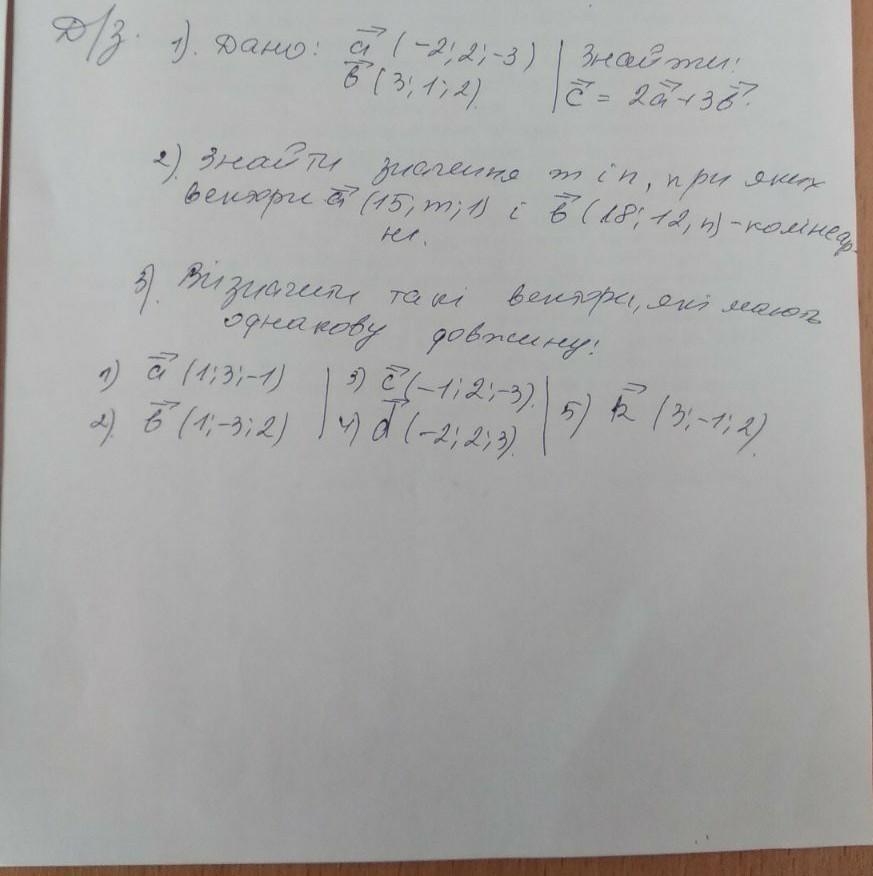 Д/з. 1). Дано: a⃗ (-2; 2; -3) | Знайти:
b⃗ (3; 1; 2) | c⃗ = 2a⃗ + 3b⃗.
2). Знайти значення m і n, при яких
вектори a⃗ (15; m; 1) і b⃗ (18; 12, n) - колінеар-
ні.
3). Визначити такі вектори, які мають
однакову довжину:
1) a⃗ (1; 3; -1) | 3) c⃗ (-1; 2; -3). | 5) k⃗ (3; -1; 2).
2). b⃗ (1; -3; 2) | 4) d⃗ (-2; 2; 3).